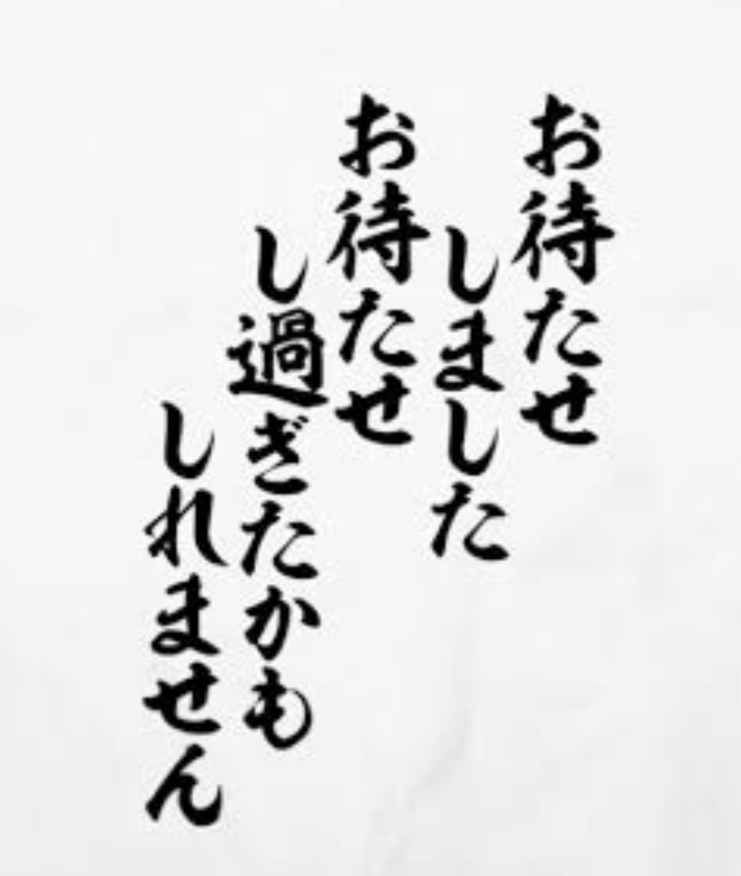 お待たせ
しました
お待たせ
し過ぎたかも
しれません